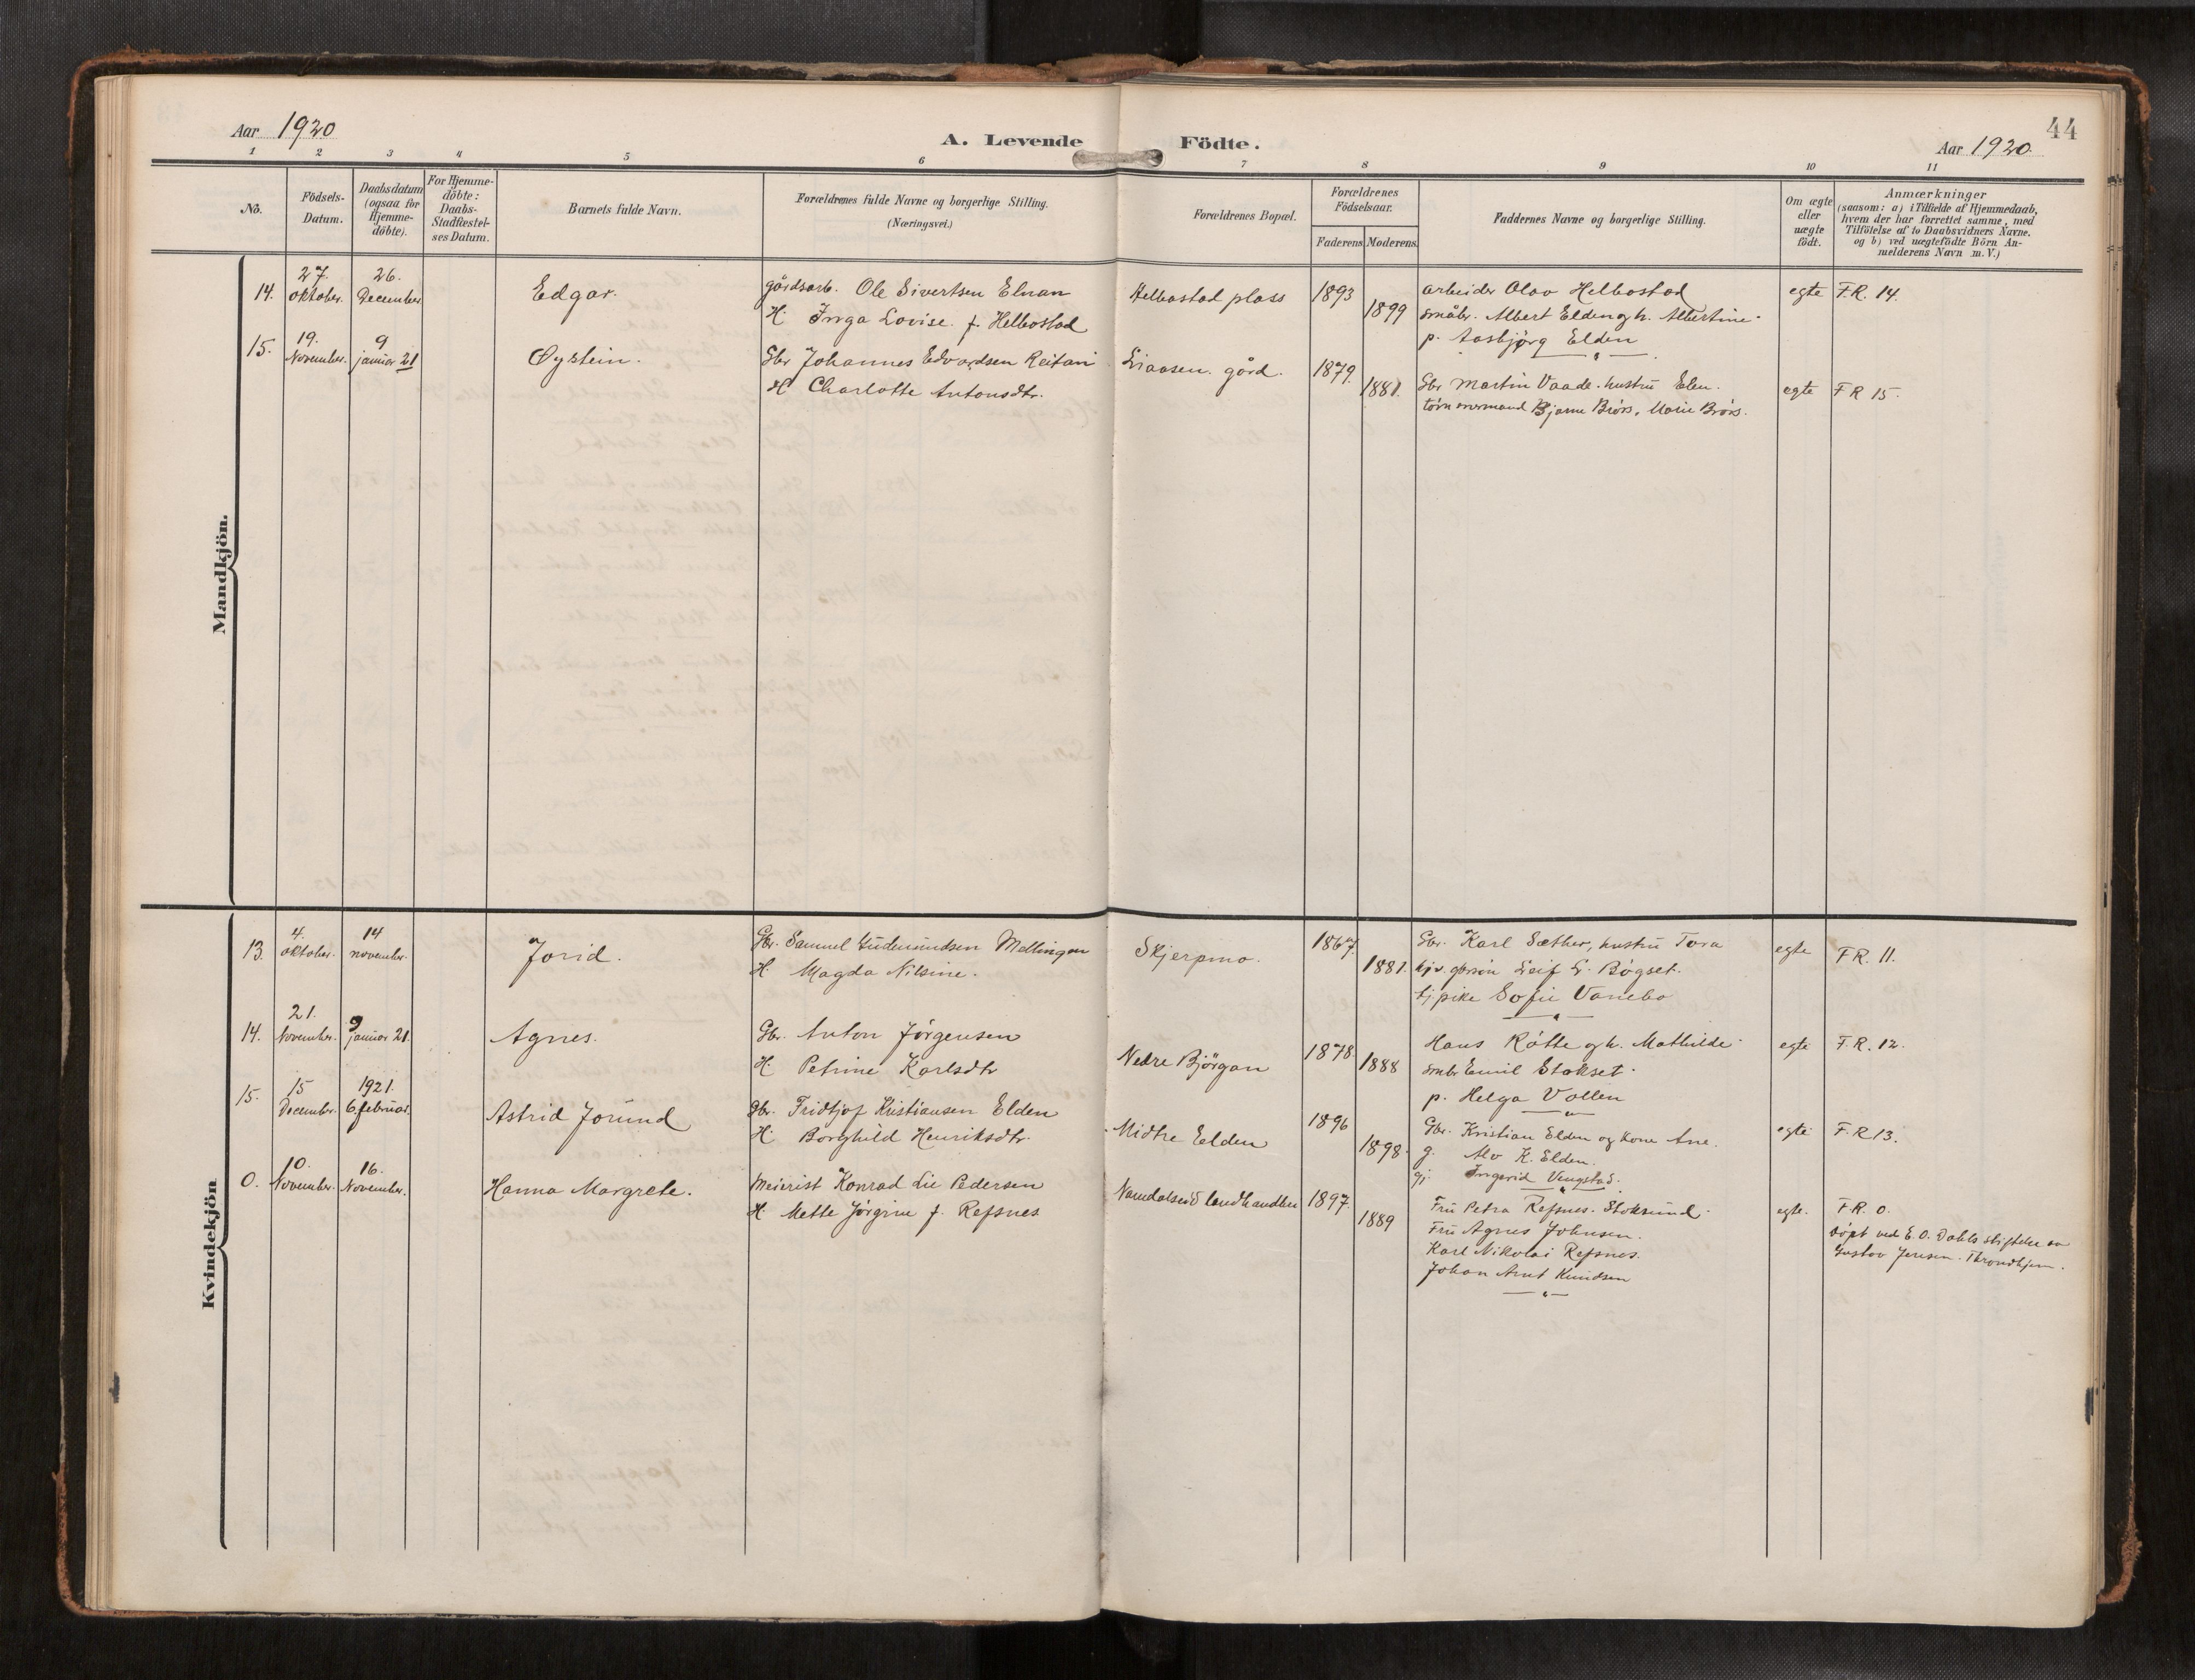 Aar 1920
A. Levende Födte.
44
Aar 1920.
1 2 3 4 5 6 7 8 9 10 11
No.
Födsels-Datum.
Daabsdatum (ogsaa for Hjemme-döbte).
For Hjemme-döbte: Daabs-Stadfæstel-ses Datum.
Barnets fulde Navn.
Forældrenes fulde Navne og borgerlige Stilling. (Næringsvei.)
Forældrenes Bopæl.
Forældrenes Födselsaar.
Faderens Moderens
Faddernes Navne og borgerlige Stilling.
Om ægte eller uægte födt.
Anmærkninger
(saasom: a) i Tilfælde af Hjemmedaab,
hvem der har forrettet samme, med
Tilföielse af to Daabsvidners Navne.
og b) ved uægtefödte Börn An-
melderens Navn m.V.)
Mandkjön.
14. 27. oktober. 26. December Edgar. gårdsarb. Ole Sivertsen Elnan Helbostad plass 1893 arbeider Olav Helbostad egte F.R. 14.
H. Inga Lovise f. Helbostad 1899 småbr. Albert Elden og h. Albertine.
p. Aasbjørg Elden
15. 19. November. 9 januar 21 Øystein. Gbr Johannes Edvardsen Reitan Liaasen. gård. 1879.
H Charlotte Antonsdtr. 1881. Gbr Martin Vaade. hustru Elen. egte FR 15.
Bjarne Brørs, Marie Brørs.
Kvindekjön
13. 4. oktober. 14 november. Jorid. Gbr. Samuel Gudmundsen Mellingen Skjerpmo. 1867. Gbr. Karl Sæther, hustru Tora egte FR. 11.
H. Magda Nilsine. 1881. Leif L. Bøgset.
tj pike Sofie Vanebo
14. 21. November. 9 januar 21. Agnes. Gbr. Anton Jørgensen Nedre Bjørgan 1878. Hans Råtte og h. Mathilde. egte F.R. 12.
H. Petrine Karlsdtr 1888 smbr Emil Stokset.
p. Helga Vollen
15. 15 December. 1921. 6. februar. Astrid Jorund Gbr. Fridtjof Kristiansen Elden Midtre Elden 1896 Gbr. Kristian Elden og kone Ane. egte F.R 13.
H. Borghild Henriksdtr. 1898. g. Alv K. Elden.
gj. Ingerid Vengstad.
0. 10. November. 16. November. Hanna Margrete. Meierist Konrad Lie Pedersen Namdalseid landhandleri 1897. Fru Petra Refsnes. Stoksund. egte. F.R. 0.
H. Mette Jørgine f. Refsnes 1889 Fru Agnes Johnsen. døpt ved E.O. Dahls stiftelse av
Karl Nikolai Refsnes. Gustav Jensen. Throndhjem.
Johan Arnt Knudsen